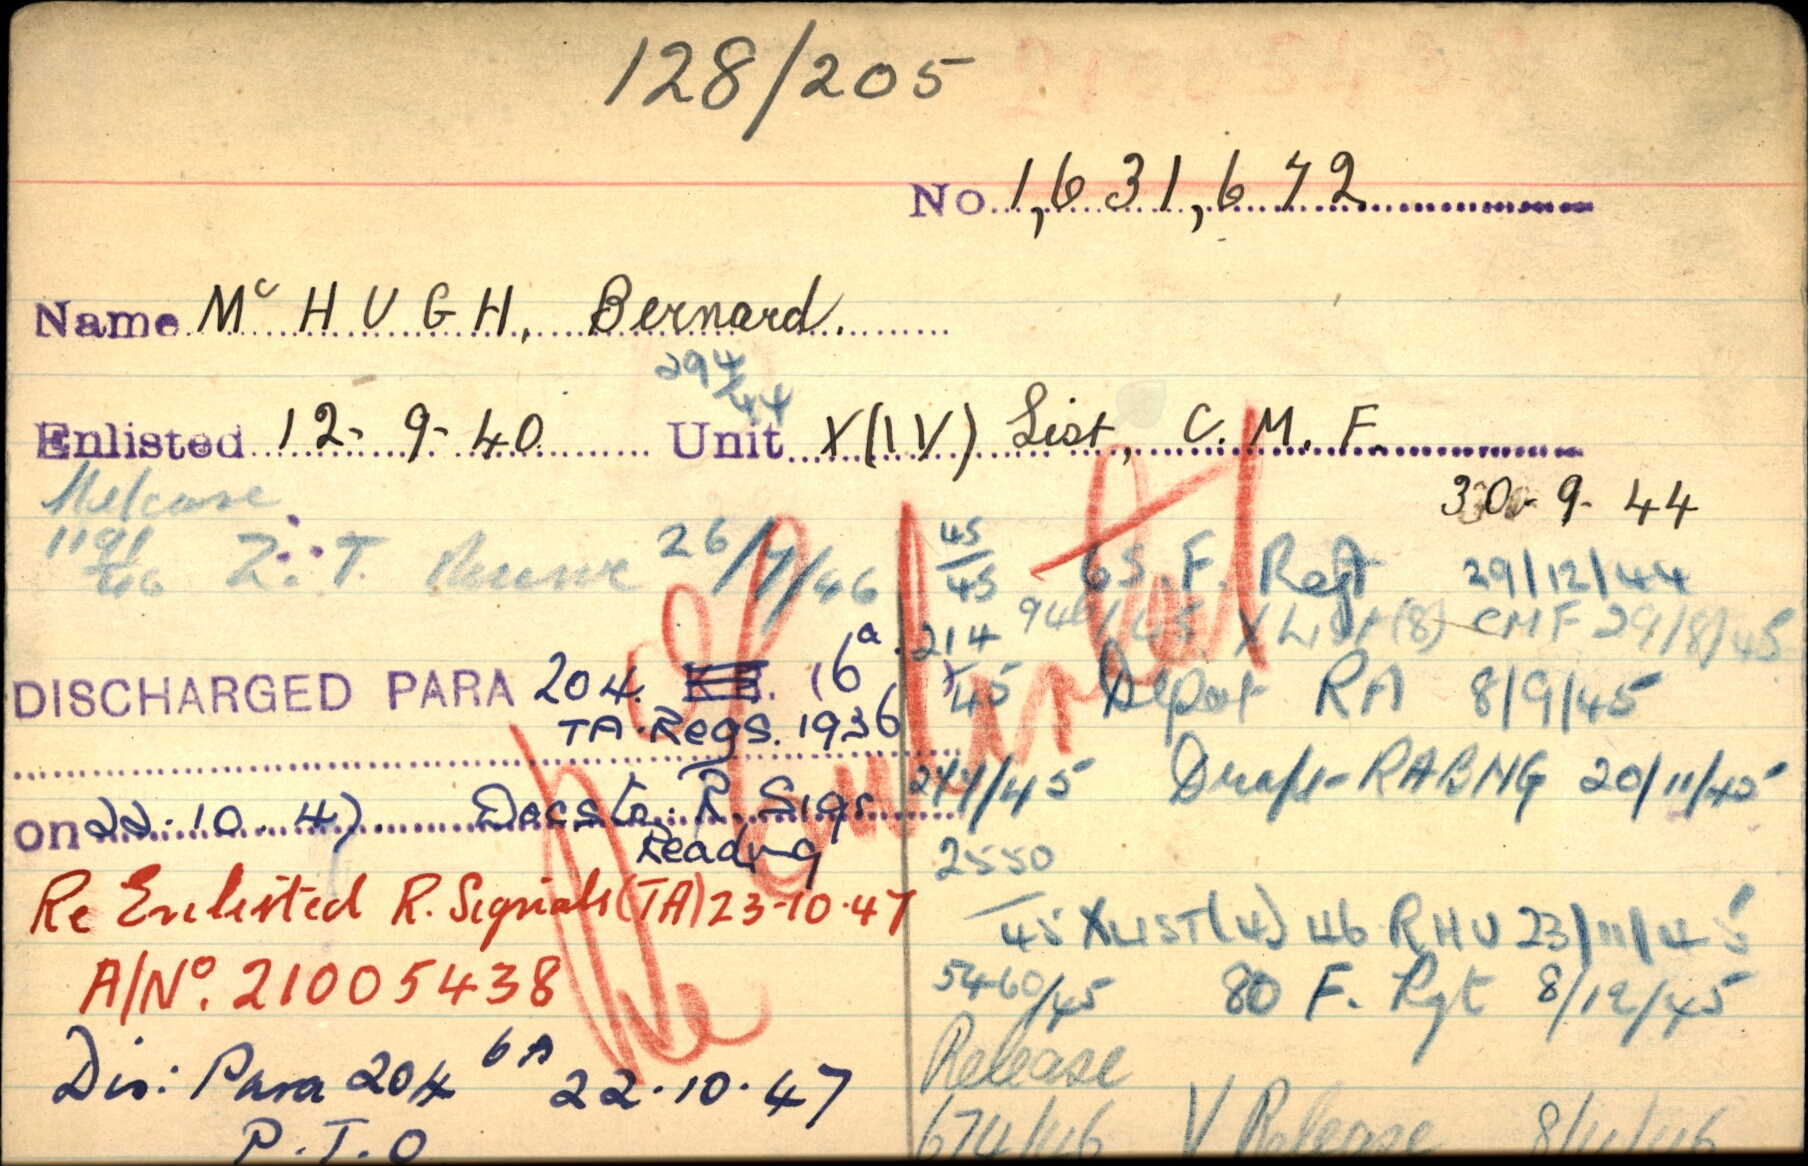 128/205
No. 1,631,672
Name McHUGH, Bernard.
294/44
Enlisted 12-9-40 Unit X(IV) List, C. M. F.
30-9-44
1191/46 Z. T. Reserve 26/7/46
45/45 65. F. Regt 29/12/44
946/45 X List (8) CMF 29/8/45
DISCHARGED PARA 204. (6a.)
TA. Regs. 1936
214/45 Depot RA 8/9/45
on 22.10.47. Docs to. R. Sigs
Reading
Draft RABNG 20/11/45
Re Enlisted R. Signals (TA) 23-10-47
2550/45 X LIST (4) 46 RHU 23/11/45
A/No. 21005438
5460/45 80 F. Rgt 8/12/45
Dis: Para 204 6A 22.10.47
Release
P.T.O
674/46 V Release
Re Enlisted